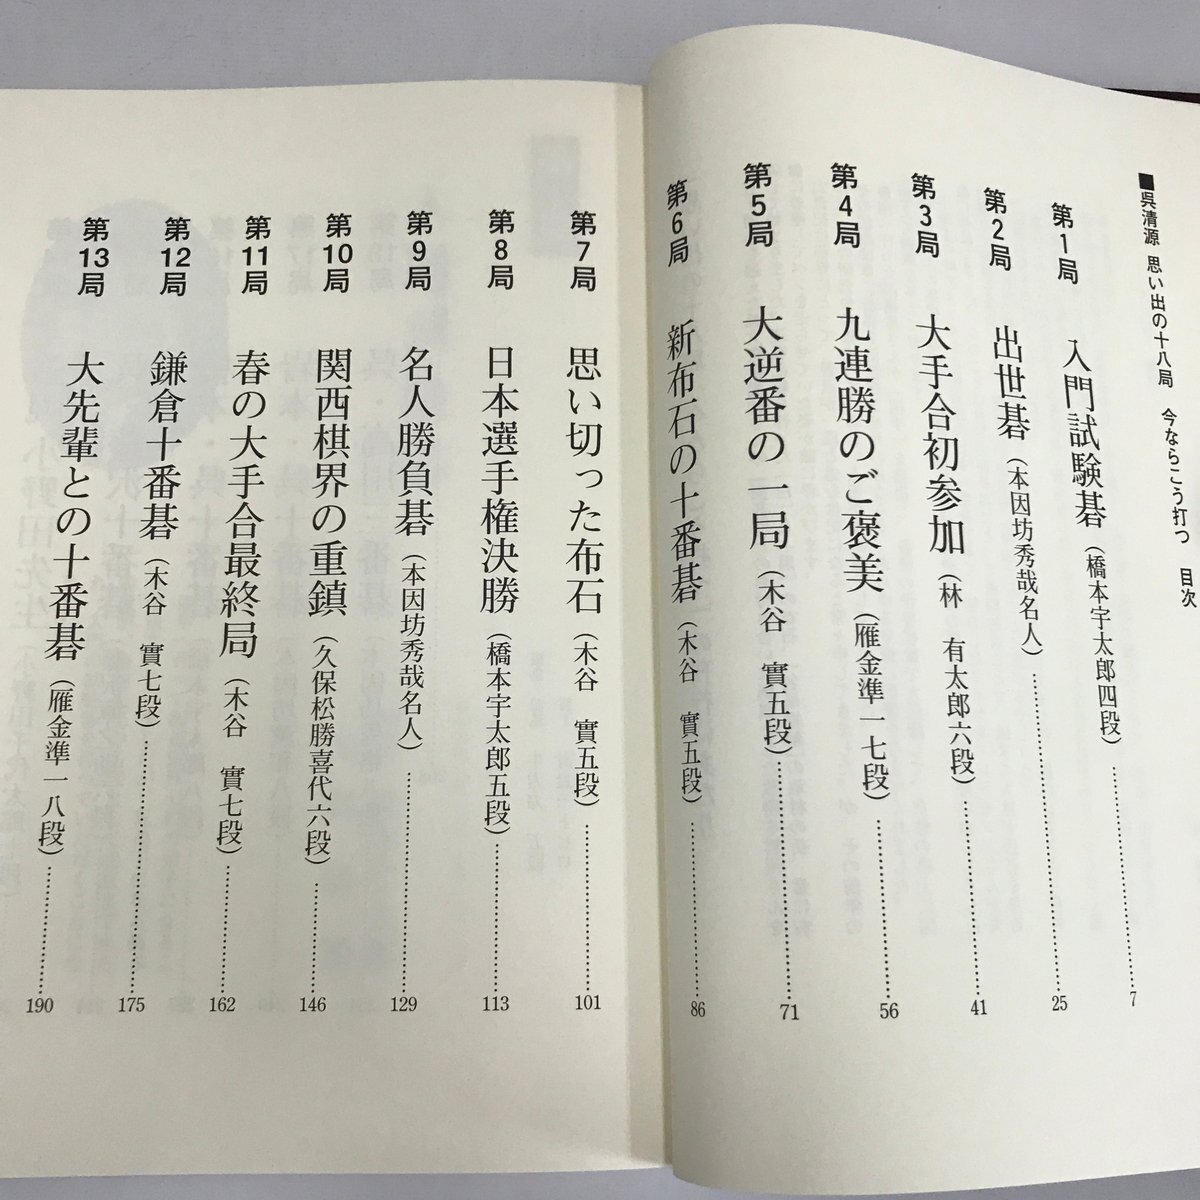 ■呉清源 思い出の十八局 今ならこう打つ 目次
第1局 入門試験碁(橋本宇太郎四段)……………7
第2局 出世碁(本因坊秀哉名人)……………25
第3局 大手合初参加(林 有太郎六段)……………41
第4局 九連勝のご褒美(雁金準一七段)……………56
第5局 大逆番の一局(木谷 實五段)……………71
第6局 新布石の十番碁(木谷 實五段)……………86
第7局 思い切った布石(木谷 實五段)……………101
第8局 日本選手権決勝(橋本宇太郎五段)……………113
第9局 名人勝負碁(本因坊秀哉名人)……………129
第10局 関西棋界の重鎮(久保松勝喜代六段)……………146
第11局 春の大手合最終局(木谷 實七段)……………162
第12局 鎌倉十番碁(木谷 實七段)……………175
第13局 大先輩との十番碁(雁金準一八段)……………190